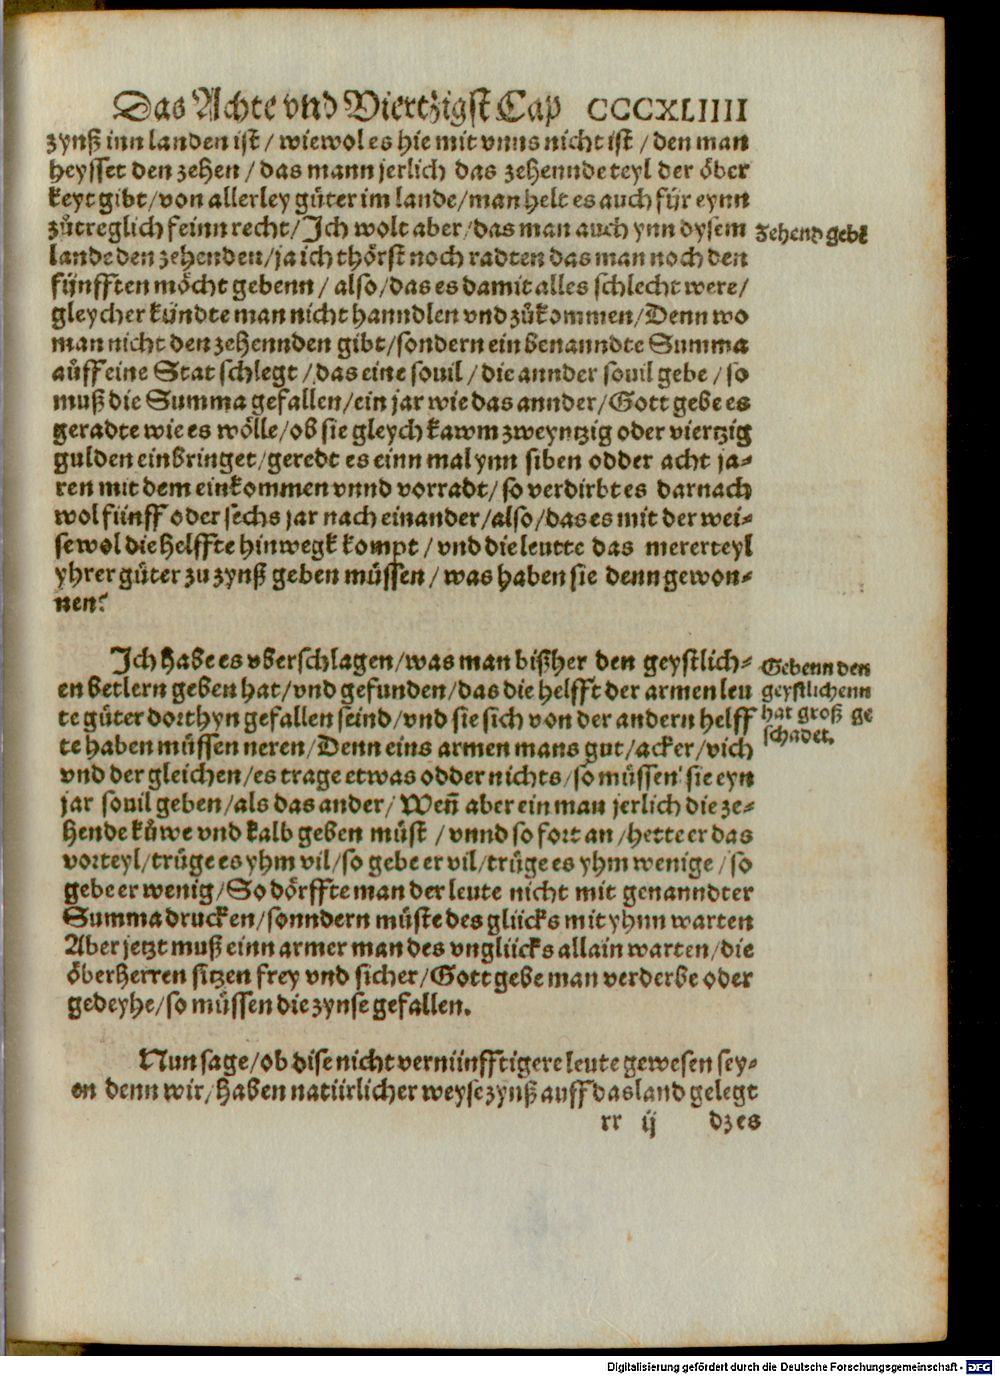 Das Achte vnd Viertzigst Cap CCCXLIIII
zynß inn landen ist / wiewol es hie mit vnns nicht ist / den man
heysset den zehen / das mann jerlich das zehennde teyl der öber
keyt gibt / von allerley güter im lande / man helt es auch für eynn
zůtreglich feinn recht / Ich wolt aber / das man auch ynn dysem
lande den zehenden / ja ich thörst noch radten das man noch den
fünfften möcht gebenn / also / das es damit alles schlecht were /
gleycher kündte man nicht hanndlen vnd zůkommen / Denn wo
man nicht den zehennden gibt / sondern ein benanndte Summa
auff eine Stat schlegt / das eine souil / die annder souil gebe / so
muß die Summa gefallen / ein jar wie das annder / Gott gebe es
geradte wie es wölle / ob sie gleych kawm zweyntzig oder viertzig
gulden einbringet / geredt es einn mal ynn siben odder acht ja⸗
ren mit dem einkommen vnnd vorradt / so verdirbt es darnach
wol fünff oder sechs jar nach einander / also / das es mit der wei⸗
se wol die helffte hinwegk kompt / vnd die leutte das mererteyl
yhrer güter zu zynß geben müssen / was haben sie denn gewon⸗
nen?
Zehend gebē
Ich habe es vberschlagen / was man bißher den geystlich⸗
en betlern geben hat / vnd gefunden / das die helfft der armen leu
te güter dorthyn gefallen seind / vnd sie sich von der andern helff
te haben müssen neren / Denn eins armen mans gut / acker / vich
vnd der gleichen / es trage etwas odder nichts / so müssen sie eyn
jar souil geben / als das ander / Weñ aber ein man jerlich die ze⸗
hende kůwe vnd kalb geben müst / vnnd so fort an / hette er das
vorteyl / trüge es yhm vil / so gebe er vil / trüge es yhm wenige / so
gebe er wenig / So dörffte man der leute nicht mit genanndter
Summa drucken / sonndern müste des glücks mit yhnn warten
Aber jetzt muß einn armer man des vnglücks allain warten / die
öberherren sitzen frey vnd sicher / Gott gebe man verderbe oder
gedeyhe / so müssen die zynse gefallen.
Gebenn den
geystlichenn
hat groß ge
schadet.
Nun sage / ob dise nicht vernünfftigere leute gewesen sey⸗
en denn wir / haben natürlicher weyse zynß auff das land gelegt
rr ij dzes
Digitalisierung gefördert durch die Deutsche Forschungsgemeinschaft - DFG